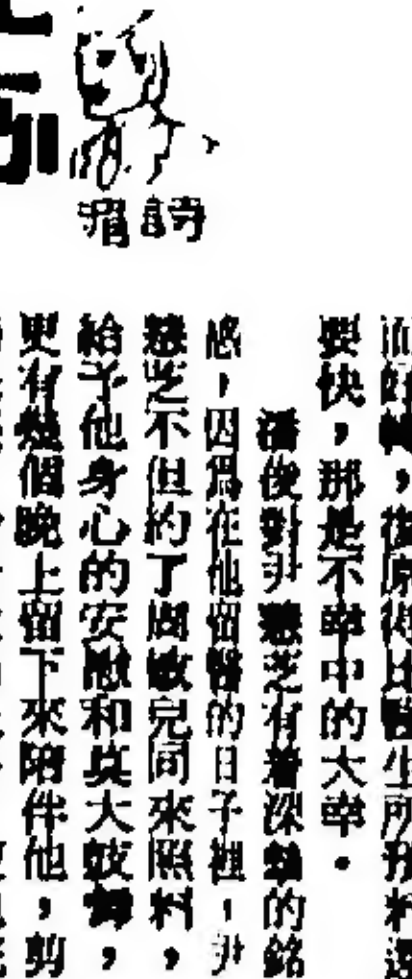 詩
而好轉，復原得比醫生所預料還
要快，那是不幸中的大幸。
潘俊對尹慧芝有着深摯的銘
感，因爲在他留醫的日子裡，尹
慧芝不但約了周敏兒同來照料，
給予他身心的安慰和莫大鼓舞，
更有幾個晚上留下來陪伴他，剪